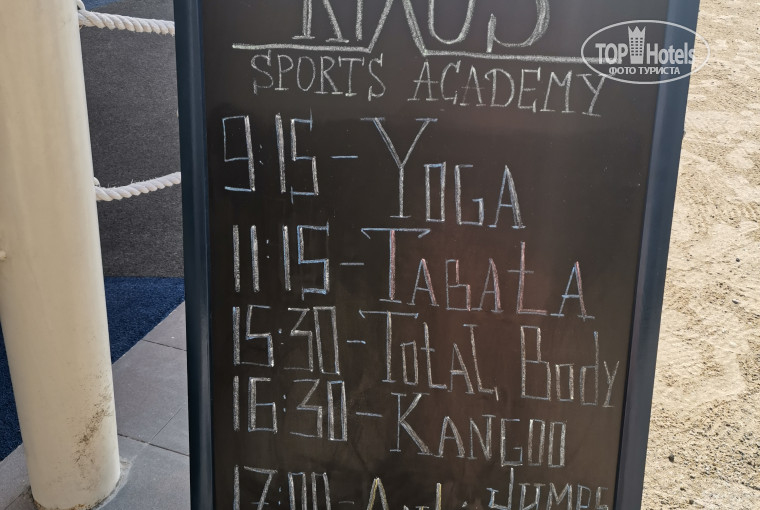 RIXOS
SPORTS ACADEMY
9:15 - YOGA
11:15 - TABATA
15:30 - TOTAL BODY
16:30 - KANGOO
JUMPS
17:00 -
TOPHotels
ФОТО ТУРИСТА